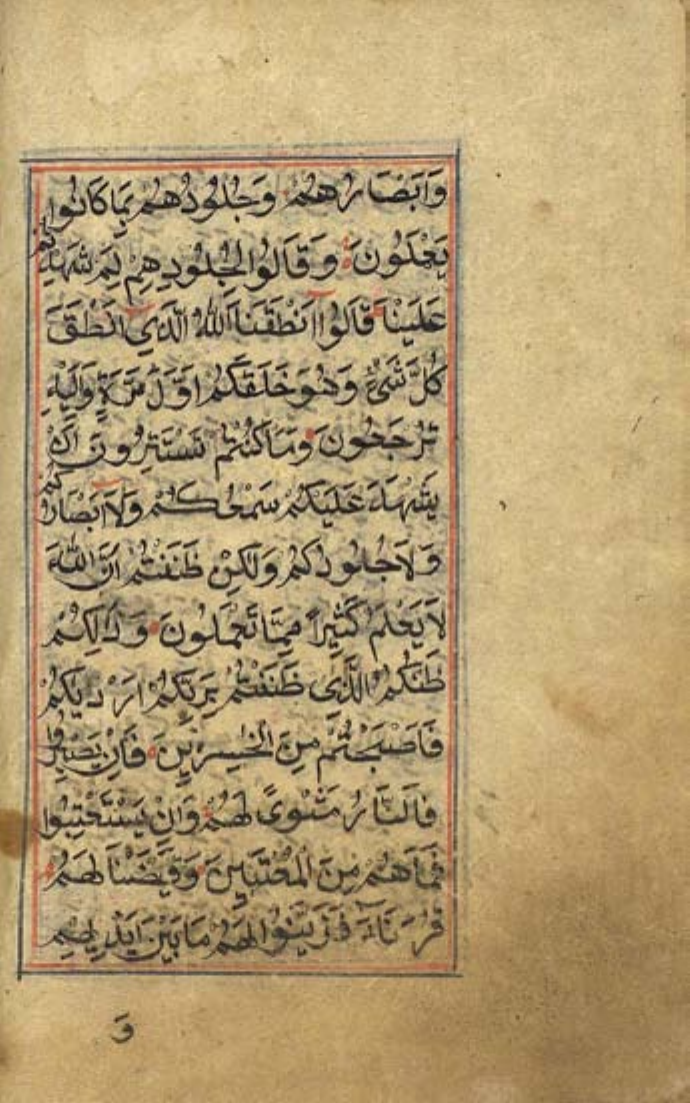 وَاَبْصَارُهُمْ وَجُلُودُهُمْ بِمَا كَانُوا
يَعْمَلُونَ وَقَالُوا لِجُلُودِهِمْ لِمَ شَهِدْتُمْ
عَلَيْنَا قَالُوا اَنْطَقَنَا اللّٰهُ الَّذِى اَنْطَقَ
كُلَّ شَىْءٍ وَهُوَ خَلَقَكُمْ اَوَّلَ مَرَّةٍ وَاِلَيْهِ
تُرْجَعُونَ وَمَا كُنْتُمْ تَسْتَتِرُونَ اَنْ
يَشْهَدَ عَلَيْكُمْ سَمْعُكُمْ وَلَا اَبْصَارُكُمْ
وَلَا جُلُودُكُمْ وَلَكِنْ ظَنَنْتُمْ اَنَّ اللّٰهَ
لَا يَعْلَمُ كَثِيرًا مِمَّا تَعْمَلُونَ وَذَلِكُمْ
ظَنُّكُمُ الَّذِى ظَنَنْتُمْ بِرَبِّكُمْ اَرْدٰيكُمْ
فَاَصْبَحْتُمْ مِنَ الْخٰسِرِينَ فَاِنْ يَصْبِرُوا
فَالنَّارُ مَثْوًى لَهُمْ وَاِنْ يَسْتَعْتِبُوا
فَمَا هُمْ مِنَ الْمُعْتَبِينَ وَقَيَّضْنَا لَهُمْ
قُرَنَاءَ فَزَيَّنُوا لَهُمْ مَا بَيْنَ اَيْدِيهِمْ
وَ